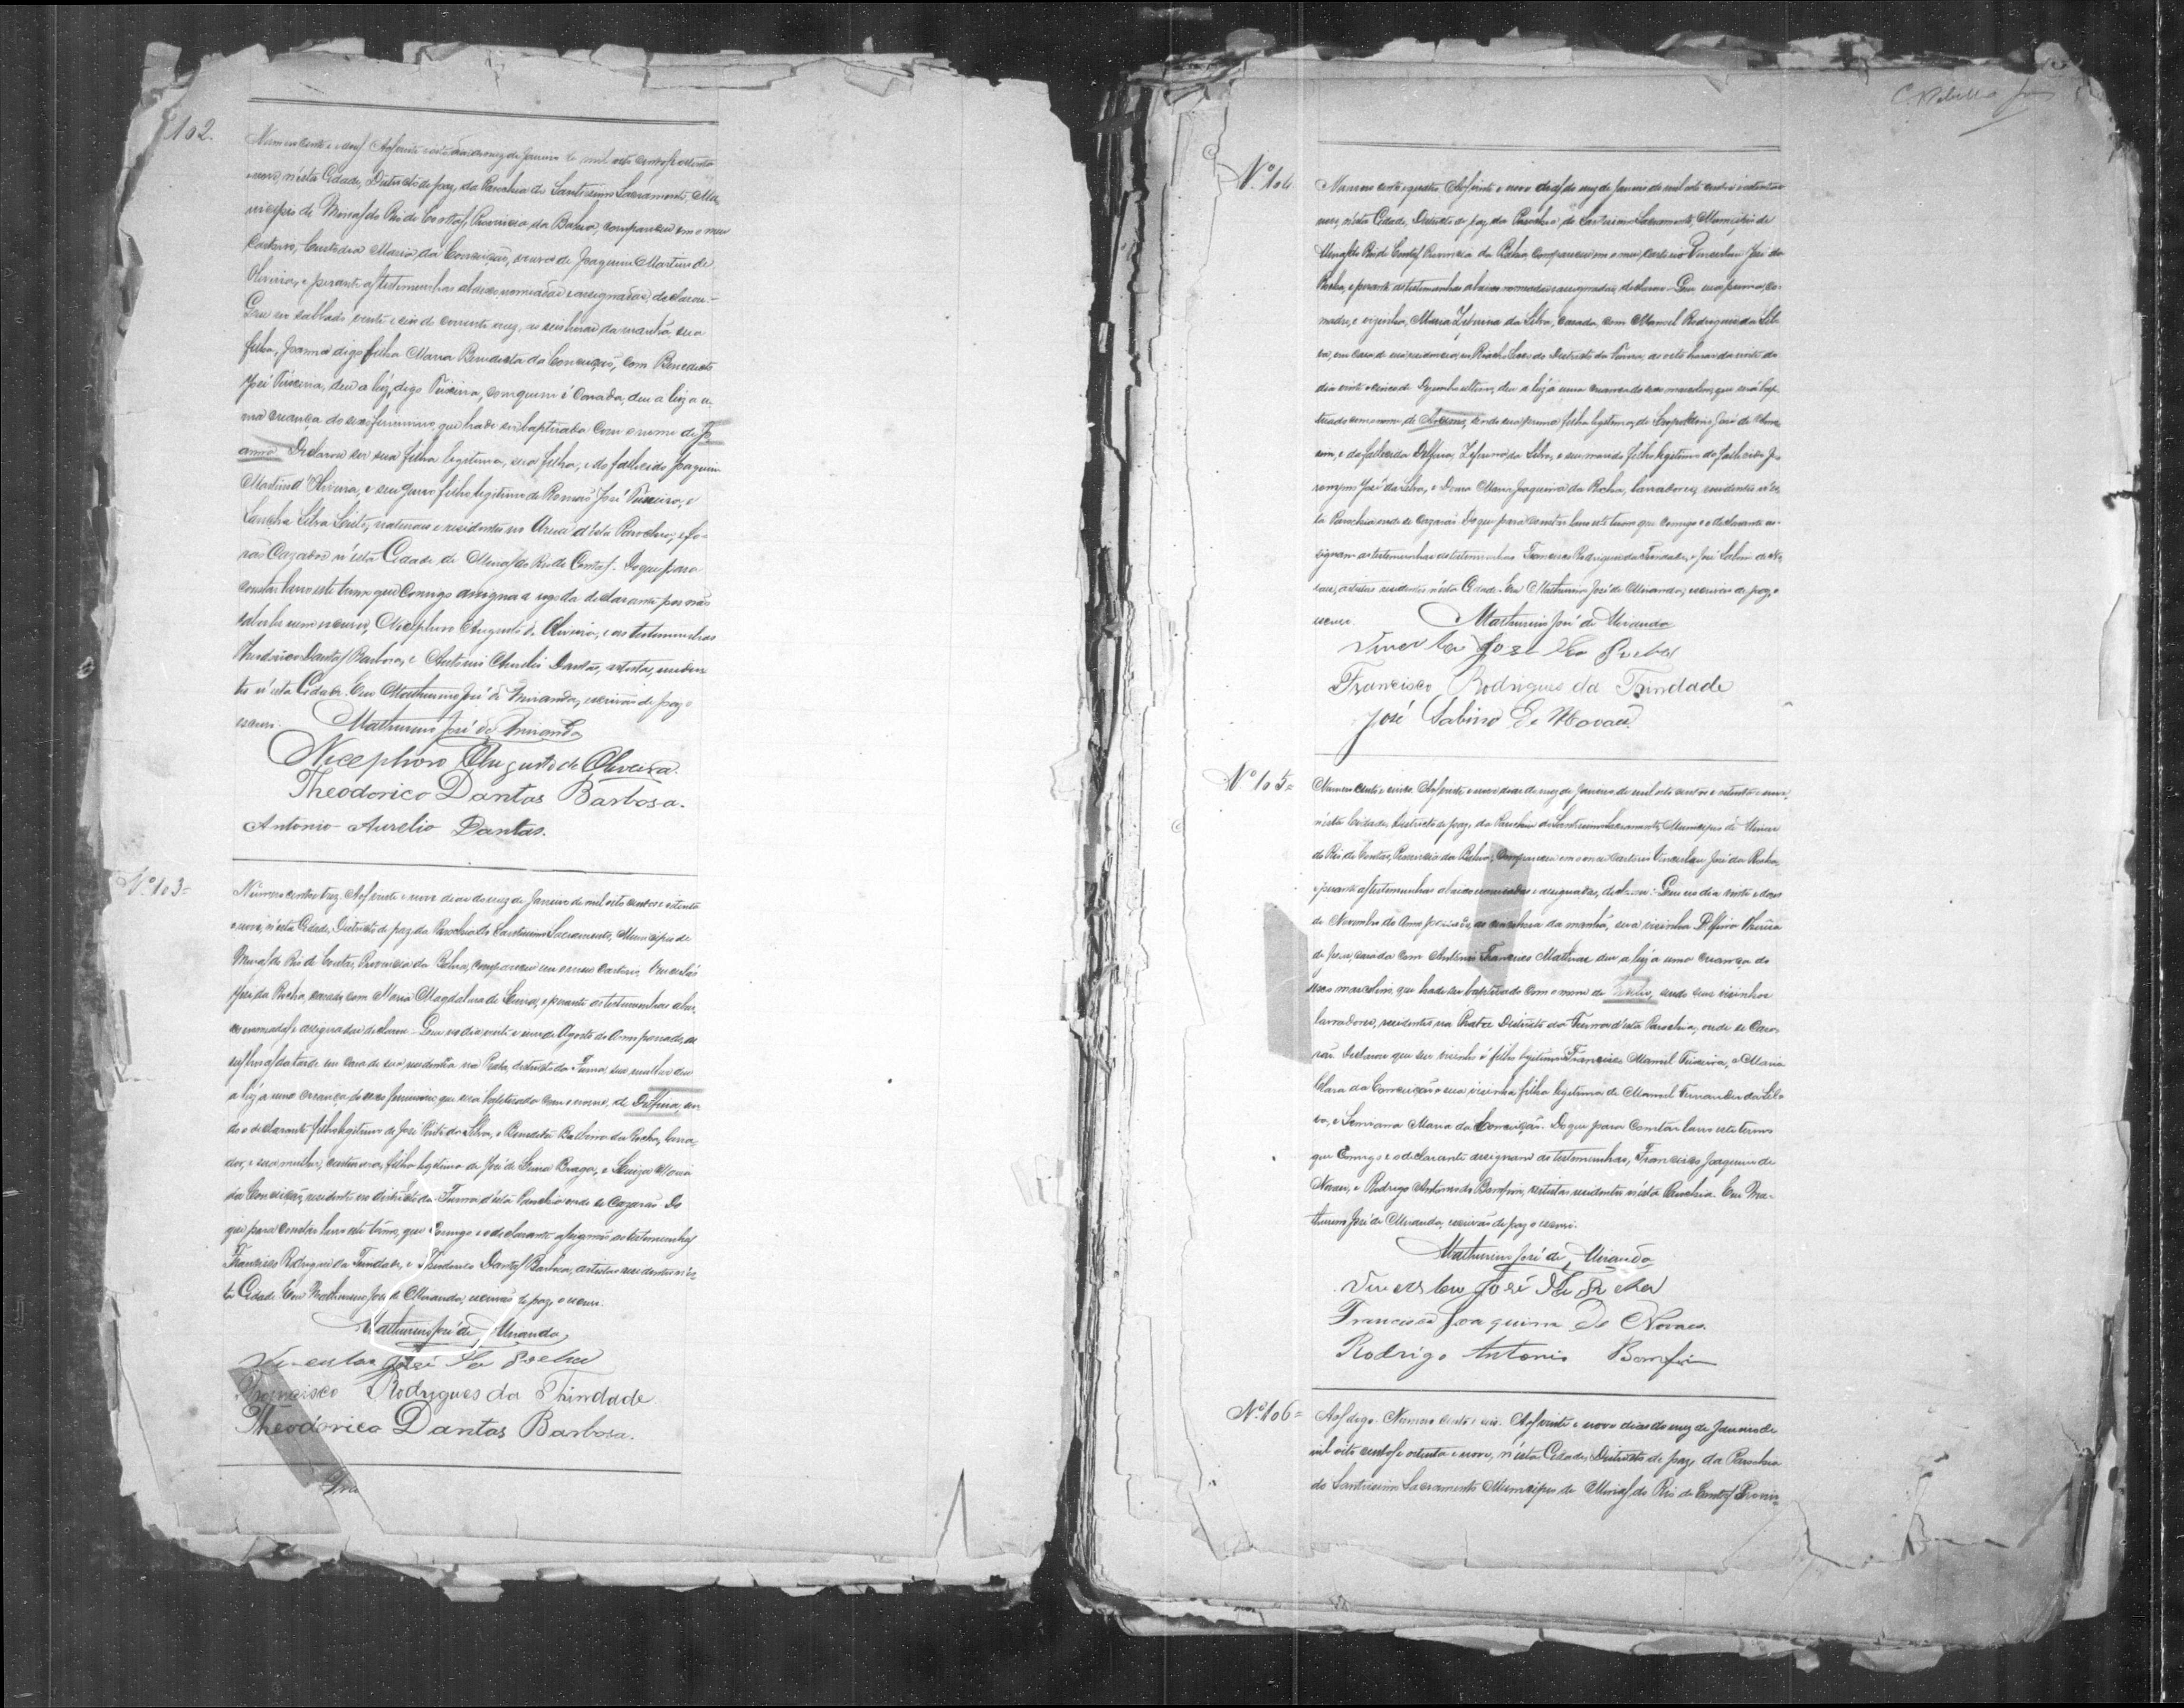 102.
Numero cento e dous. Aos vinte e oito dias do mez de Janeiro de mil oito centos e setenta
e nove, n'esta Cidade, Districto de paz da Parochia do Santissimo Sacramento, Mu-
nicipio de Minas do Rio de Contas, Provincia da Bahia, compareceu em o meu
Cartorio, Custodia Maria da Conceição, viuva de Joaquim Martins de
Oliveira, e perante as testemunhas abaixo nomeadas e assignadas, declarou -
Que no sabbado, vinte e seis do corrente mez, as seis horas da manhã sua
filha, Joanna digo filha Maria Benedicta da Conceição, com Benedicto
José Teixeira, deu a luz, digo Teixeira, com quem é Casada, deu a luz a u-
ma creança do sexo femenino, que hade ser baptizada com o nome de Jo-
anna. Declarou ser sua filha legitima, sua filha, e do fallecido Joaquim
Martins d'Oliveira, e seu genro filho legitimo de Romão José Teixeira, e
Sancha Silva Leite, naturaes e residentes no Areia d'esta Parochia, e fo-
rão Cazados n'esta Cidade de Minas do Rio de Contas. Do que para
constar lavro este termo que comigo assigna a rogo da declarante por não
saber ler nem escrever, Nicephoro Augusto de Oliveira, e as testemunhas
Theodorico Dantas Barbosa, e Antonio Aurelio Dantas, artistas, residen-
tes n'esta Cidade. Eu Mathurino José de Miranda, escrivão de paz o
escrevi. Mathurino José de Miranda
Nicephoro Augusto de Oliveira.
Theodorico Dantas Barbosa.
Antonio Aurelio Dantas.
Nº 103=
Número cento e trez. Aos vinte e nove dias do mez de Janeiro de mil oito centos e setenta
e nove, n'esta Cidade, Districto de paz da Parochia do Santissimo Sacramento, Municipio de
Minas do Rio de Contas, Provincia da Bahia, compareceu em o meu Cartorio, Vencesláo
José da Rocha, casado com Maria Magdalena de, e perante as testemunhas abai-
xo nomeadas e assignadas declarou - Que no dia vinte e nove de Agosto do Anno passado, as
seis horas da tarde em casa de sua residencia na, districto da Furna, sua mulher deu
a lúz a uma creança do sexo femenino, que será baptizada com o nome de Delfina, sen-
do o declarante filho legitimo de José da Silva, e Benedicta da Rocha, lavra-
dor, e sua mulher, costureira, filha legitima de José de Braga, e Luiza Maria
da Conceição, residentes no districto da Furna d'esta Parochia onde se Cazarão. Do
que para constar lavro este têrmo, que Comigo e o declarante assignão as testemunhas
Francisco Rodrigues da Trindade, e Theodorico Dantas Barbosa, artistas residentes n'es-
ta Cidade. Eu Mathurino José de Miranda, escrivão de paz, o escrevi.
Mathurino José de Miranda
Venceslau José da Rocha
Francisco Rodrigues da Trindade
Theodorico Dantas Barbosa.
Nº 104
Numero cento e quatro. Aos vinte e nove dias do mez de Janeiro de mil oito centos e setenta e
nove, n'esta Cidade, Districto de paz da Parochia do Santissimo Sacramento, Municipio de
Minas do Rio de Contas, Provincia da Bahia, compareceu em o meu Cartorio Venceslau José da
Rocha, e perante as testemunhas abaixo nomeadas e assignadas, declarou - Que sua prima, co-
madre, e vizinha, Maria Zeferina da Silva, casada com Manoel Rodrigues da Sil-
va, em casa de sua residencia, em Riacho do Districto da Furna, as oito horas da noite do
dia vinte e cinco de Dezembro ultimo, deu a luz a uma creança do sexo masculino, que será bap-
tizado com o nome de, sendo sua prima filha legitima de José de
e da fallecida Delfina Zeferina da Silva, e seu marido filho legitimo do fallecido Je-
ronymo José da Silva, e Dona Maria Joaquina da Rocha, lavradores, residentes n'es-
ta Parochia onde se cazarão. Do que para constar lavro este termo que comigo e o declarante as-
signam as testemunhas Francisco Rodrigues da Trindade, e José Sabino de No-
vaes, artistas residentes n'esta Cidade. Eu Mathurino José de Miranda, escrivão de paz, o
escrevi. Mathurino José de Miranda
Venceslau José da Rocha
Francisco Rodrigues da Trindade
José Sabino de Novaes
Nº 105=
Numero cento e cinco. Aos vinte e nove dias do mez de Janeiro de mil oito centos e setenta e nove,
n'esta Cidade, Districto de paz, da Parochia do Santissimo Sacramento, Municipio de Minas
do Rio de Contas, Provincia da Bahia, compareceu em o meu Cartorio Venceslau José da Rocha,
e perante as testemunhas abaixo nomeadas e assignadas, declarou: Que no dia vinte e dous
de Novembro do Anno passado, as horas da manhã, sua visinha Delfina
de Jesus, casada com Antonio Francisco deu a luz a uma creança do
sexo masculino, que hade ser baptizado com o nome de, sendo seus visinhos
lavradores, residentes na Districto da Furna d'esta Parochia, onde se Caza-
rão. Declarou que seu visinho é filho legitimo Francisco Manoel Teixeira, e Maria
Clara da Conceição e sua visinha filha legitima de Manoel Fernandes da Sil-
va, e Maria da Conceição. Do que para Constar lavro este termo
que Comigo e o declarante assignam as testemunhas, Francisco Joaquim de
Novaes, e Rodrigo Antonio do Bomfim, artistas residentes n'esta Parochia. Eu Ma-
thurino José de Miranda, escrivão de paz o escrevi.
Mathurino José de Miranda
Venceslau José da Rocha
Francisco Joaquim de Novaes.
Rodrigo Antonio Bomfim
Nº 106=
Aos digo. Numero cento e seis. Aos vinte e nove dias do mez de Janeiro de
mil oito centos e setenta e nove, n'esta Cidade, Districto de paz, da Parochia
do Santissimo Sacramento Municipio de Minas do Rio de Contas Provin-